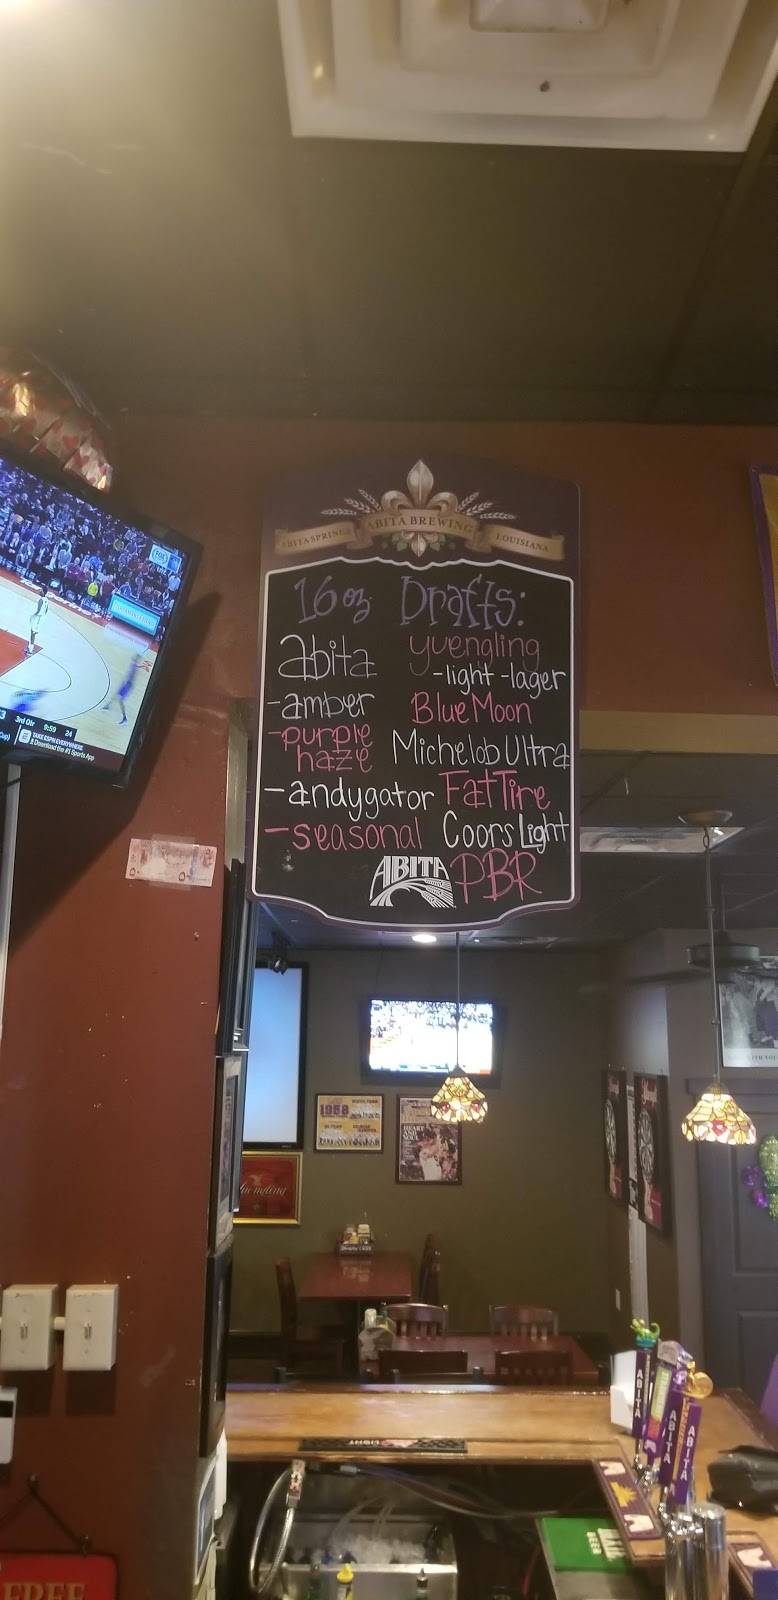 ABITA SPRINGS ABITA BREWING LOUISIANA
16 oz Drafts:
abita
-amber
-purple
haze
-andygator
-seasonal
yuengling
-light -lager
Blue Moon
Michelob Ultra
Fat Tire
Coors Light
PBR
ABITA
FOX
3rd Qtr 9:59 24
TAKE ESPN EVERYWHERE
Download the #1 Sports App
1958
HEART
AND
SOUL
Yuengling
LIGHT
ABITA
ABITA
ABITA
BEER
FREE